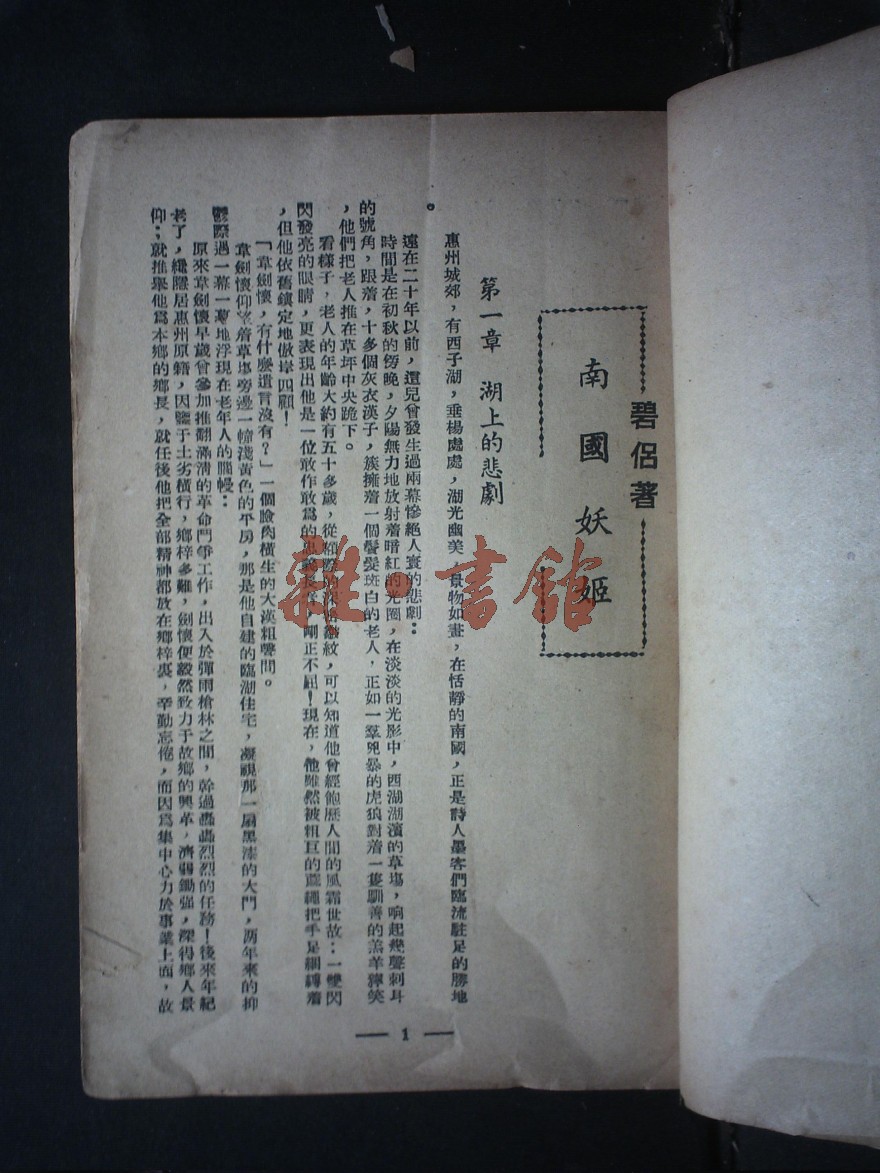 碧侶著
南國妖姬
第一章 湖上的悲劇
惠州城郊，有西子湖，垂楊處處，湖光幽美，景物如畫，在恬靜的南國，正是詩人墨客們臨流駐足的勝地
。
遠在二十年以前，這兒曾發生過兩幕慘絕人寰的悲劇：
時間是在初秋的傍晚，夕陽無力地放射着暗紅的光圈，在淡淡的光影中，西湖湖濱的草塲，响起幾聲刺耳
的號角，跟着，十多個灰衣漢子，簇擁着一個鬢髮斑白的老人，正如一羣兇暴的虎狼對着一隻馴善的羔羊獰笑
，他們把老人推在草坪中央跪下。
看樣子，老人的年齡大約有五十多歲，從額際的深皺紋，可以知道他曾經飽歷人間的風霜世故：一雙閃
閃發亮的眼睛，更表現出他是一位敢作敢爲的長者，剛正不屈！現在，他雖然被粗巨的蔴繩把手足綑縛着
，但他依舊鎮定地倣岸四顧！
「韋劍懷，有什麼遺言沒有？」一個臉肉橫生的大漢粗聲問。
韋劍懷仰望着草塲旁邊一幢淺黃色的平房，那是他自建的臨湖住宅，凝視那一扇黑漆的大門，兩年來的抑
鬱際遇一幕一幕地浮現在老年人的腦幔：
原來韋劍懷早歲曾參加推翻滿清的革命鬥爭工作，出入於彈雨槍林之間，幹過轟轟烈烈的任務！後來年紀
老了，纔隱居惠州原籍，因鑒于土劣橫行，鄉梓多難，劍懷便毅然致力于故鄉的興革，濟弱鋤强，深得鄉人景
仰；就推舉他爲本鄉的鄉長，就任後他把全部精神都放在鄉梓裏，辛勤忘倦，而因爲集中心力於事業上面，故
— 1 —
雜·書館